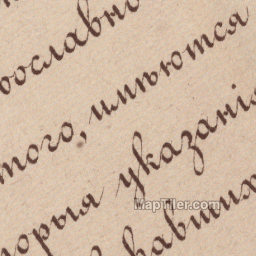 ославно
того, имѣются
орыя указанія
вавших
MapTiler.com